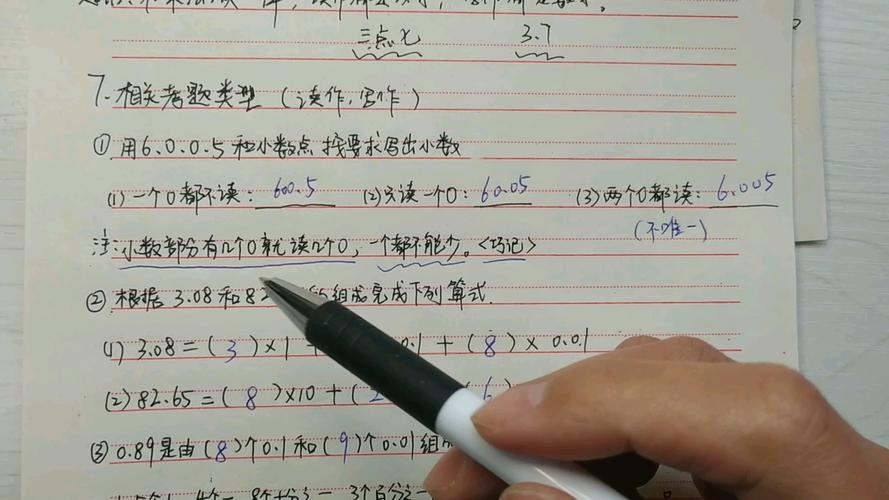 三点七 3.7
7.相关考题类型(读作,写作)
①用6.0.0.5和小数点按要求写出小数
(1)一个0都不读:600.5 (2)只读一个0:60.05 (3)两个0都读:6.005
(不唯一)
注:小数部分有几个0就读几个0,一个都不能少。<巧记>
②根据3.08和82 组成完成下列算式.
(1)3.08=(3)×1+ 0.1+(8)×0.01
(2)82.65=(8)×10+(2 (6)
③0.89是由(8)个0.1和(9)个0.01组成